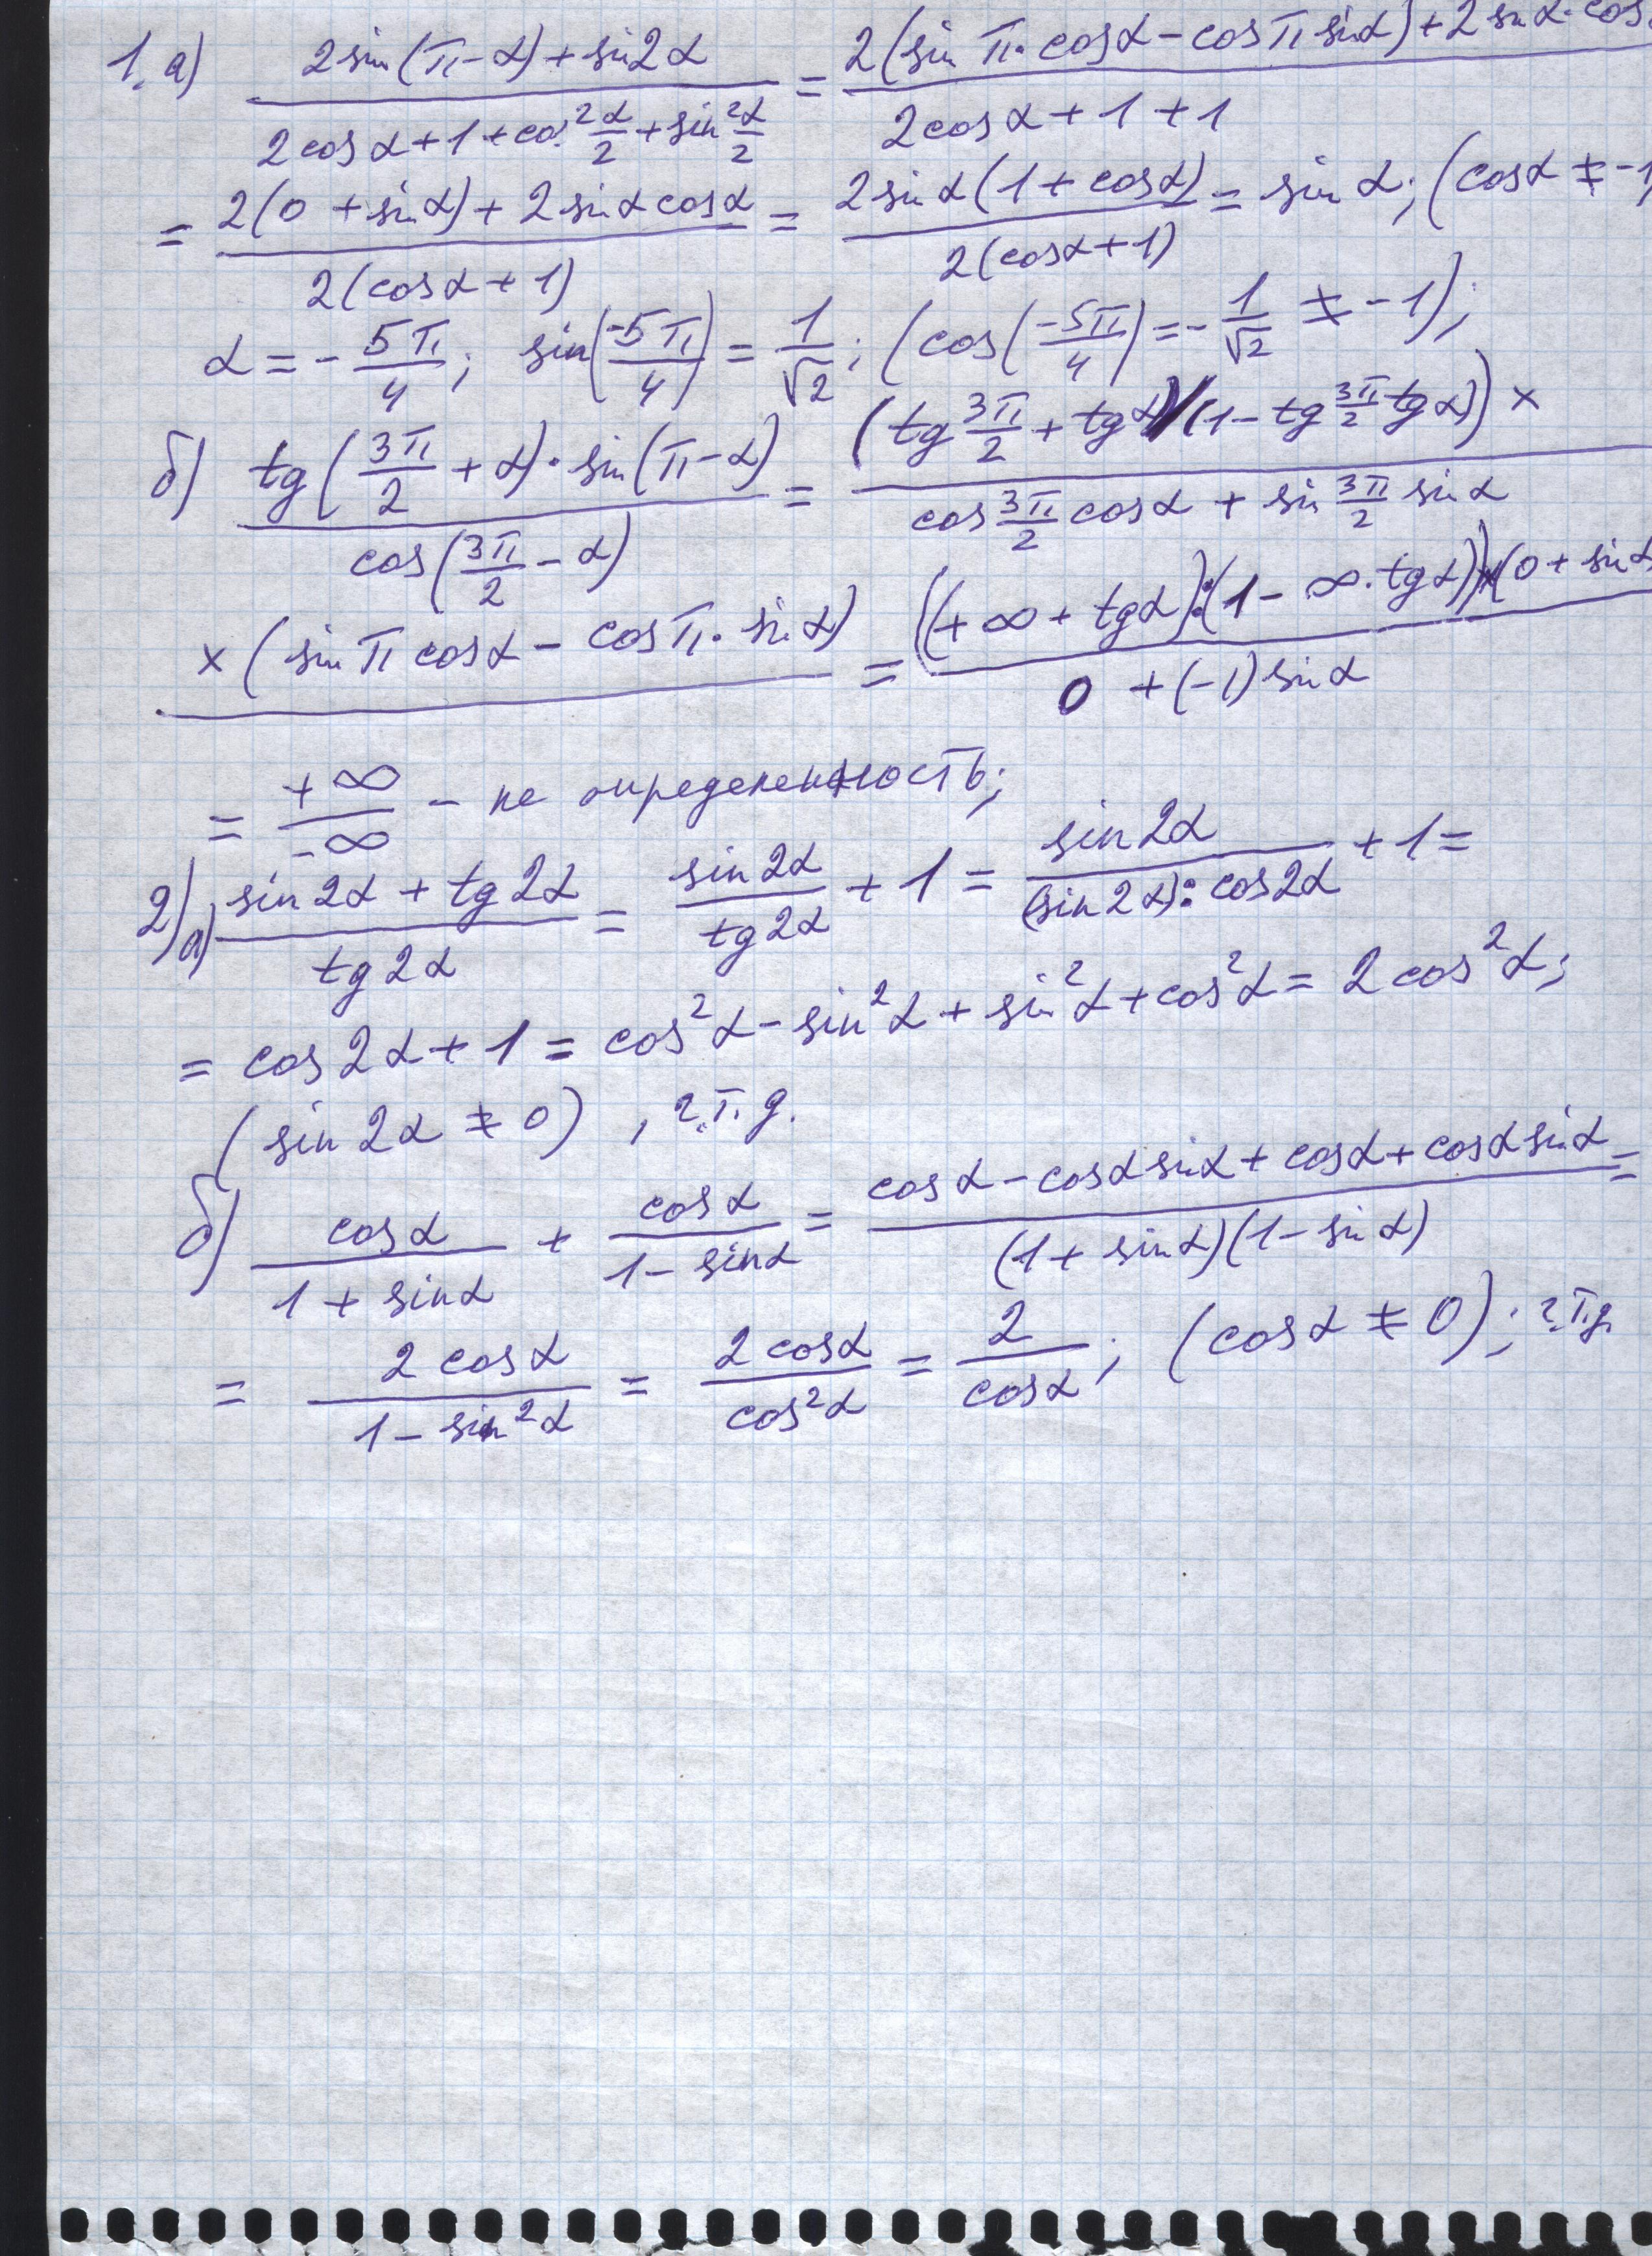 1. а) (2sin(π-α)+sin2α)/(2cosα+1+cos²α/2+sin²α/2) = (2(sinπ·cosα-cosπ sinα)+2sinα·cos)/(2cosα+1+1)
= (2(0+sinα)+2sinαcosα)/(2(cosα+1)) = (2sinα(1+cosα))/(2(cosα+1)) = sinα; (cosα≠-1)
α=-5π/4; sin(-5π/4)=1/√2; (cos(-5π/4)=-1/√2≠-1);
б) (tg(3π/2+α)·sin(π-α))/(cos(3π/2-α)) = ((tg3π/2+tgα)/(1-tg3π/2tgα))×/(cos3π/2cosα+sin3π/2sinα)
×(sinπcosα-cosπ·sinα) = ((+∞+tgα):(1-∞·tgα))×(0+sinα/(0+(-1)sinα)
= +∞/-∞ - не определенность;
2) а) (sin2α+tg2α)/(tg2α) = sin2α/tg2α+1 = sin2α/((sin2α):cos2α)+1=
= cos2α+1 = cos²α-sin²α+sin²α+cos²α = 2cos²α;
(sin2α≠0), ч.т.д.
б) cosα/(1+sinα) + cosα/(1-sinα) = (cosα-cosαsinα+cosα+cosαsinα)/((1+sinα)(1-sinα)) =
= 2cosα/(1-sin²α) = 2cosα/cos²α = 2/cosα; (cosα≠0); ч.т.д.